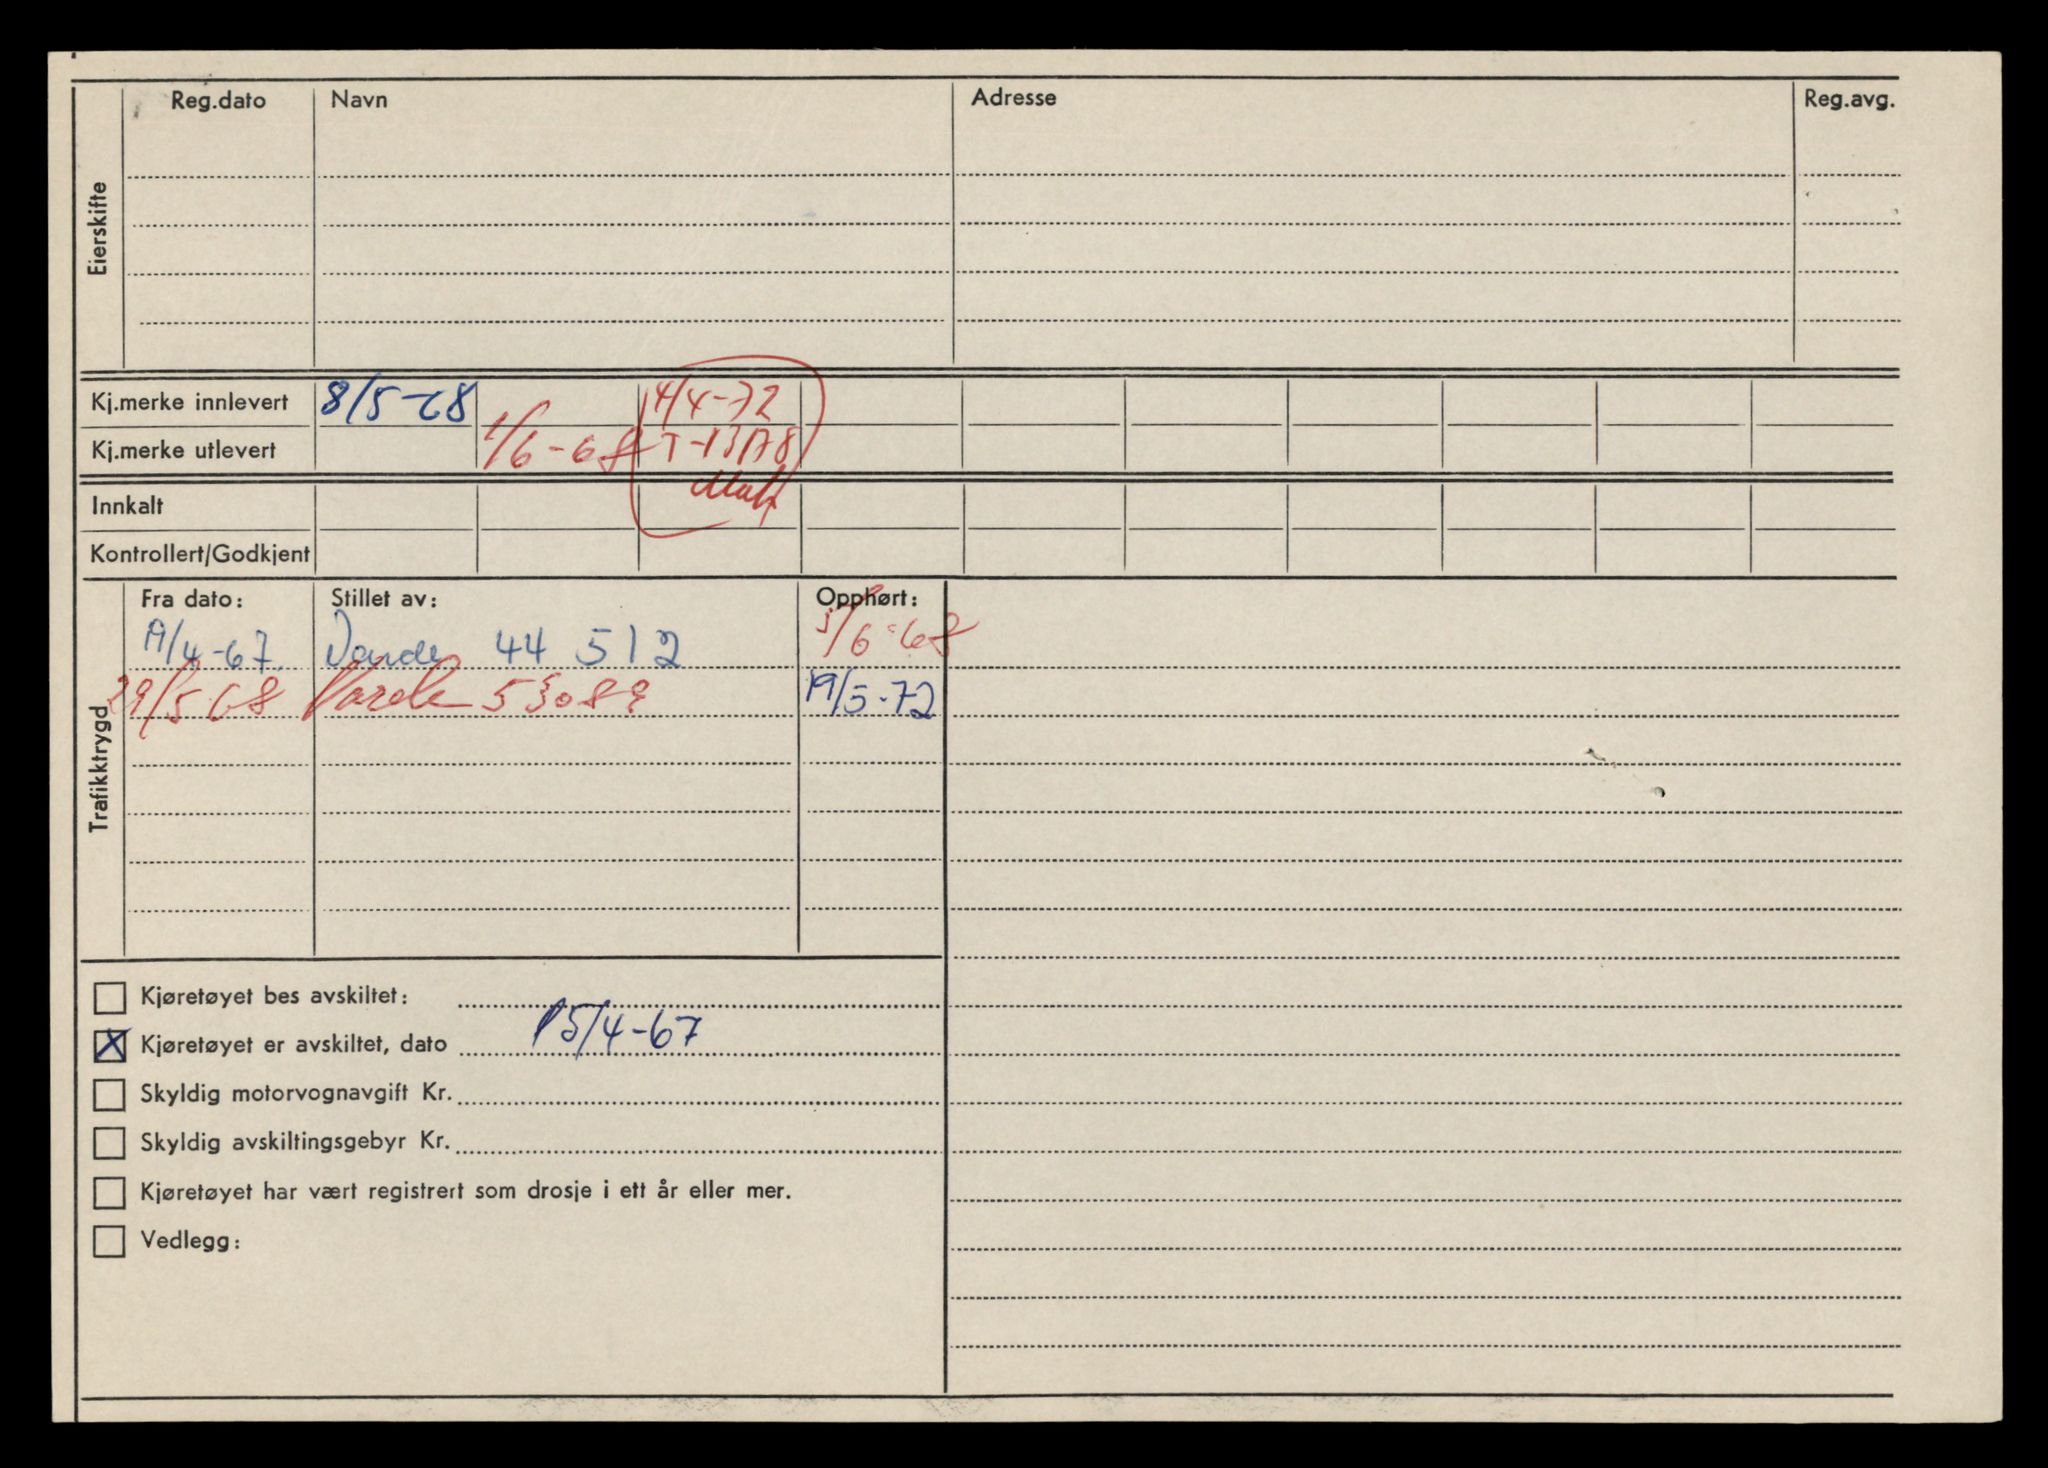 Reg.dato Navn Adresse Reg.avg.
Eierskifte
Kj.merke innlevert 8/5-68 4/4-72
Kj.merke utlevert 1/6-68
Innkalt
Kontrollert/Godkjent
Trafikktrygd
Fra dato: Stillet av: Opphørt:
/4-67. 44 512 /6-68
29/5 68 Varde 53089 19/5-72
Kjøretøyet bes avskiltet:
Kjøretøyet er avskiltet, dato 15/4-67
Skyldig motorvognavgift Kr.
Skyldig avskiltingsgebyr Kr.
Kjøretøyet har vært registrert som drosje i ett år eller mer.
Vedlegg: